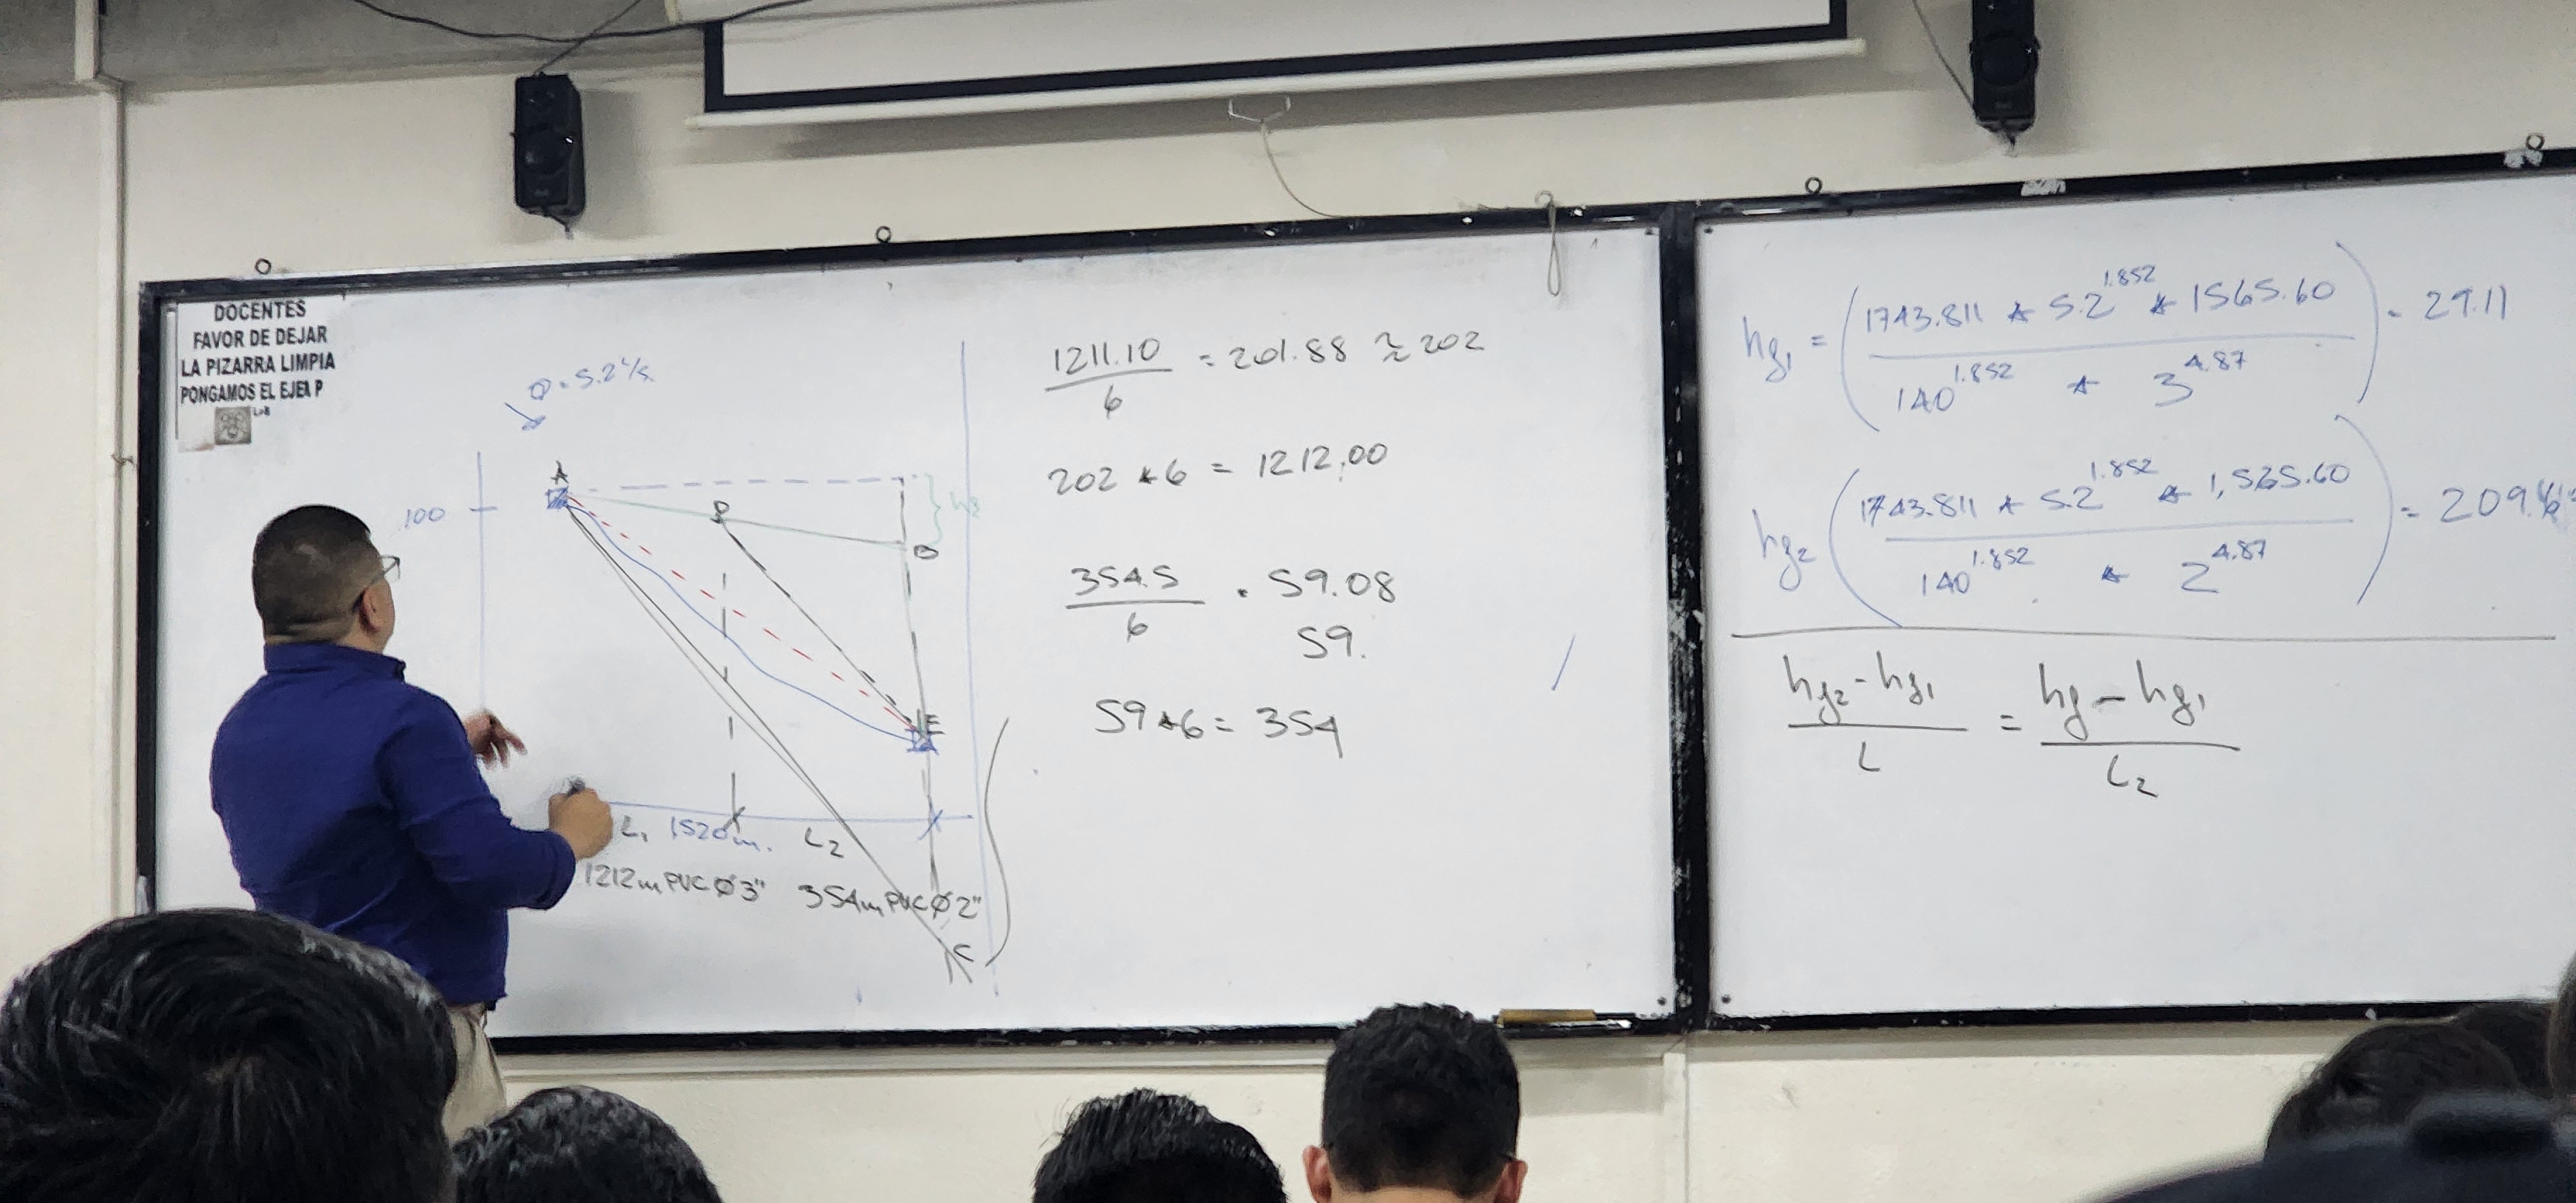 DOCENTES
FAVOR DE DEJAR
LA PIZARRA LIMPIA
PONGAMOS EL EJEM P
Q = 5.2 l/s.
A
100
D
B
E
L1 1520m. L2
1212m PVC Ø 3" 354m PVC Ø 2"
C
1211.10 / 6 = 201.88 ≈ 202
202 * 6 = 1212.00
354.5 / 6 = 59.08
59.
59*6 = 354
hf1 = (1743.811 * 5.2^1.852 * 1565.60 / 140^1.852 * 3^4.87) = 29.11
hf2 (1743.811 * 5.2^1.852 * 1,565.60 / 140^1.852 * 2^4.87) = 209.
hf2 - hf1 / L = hf - hf1 / L2